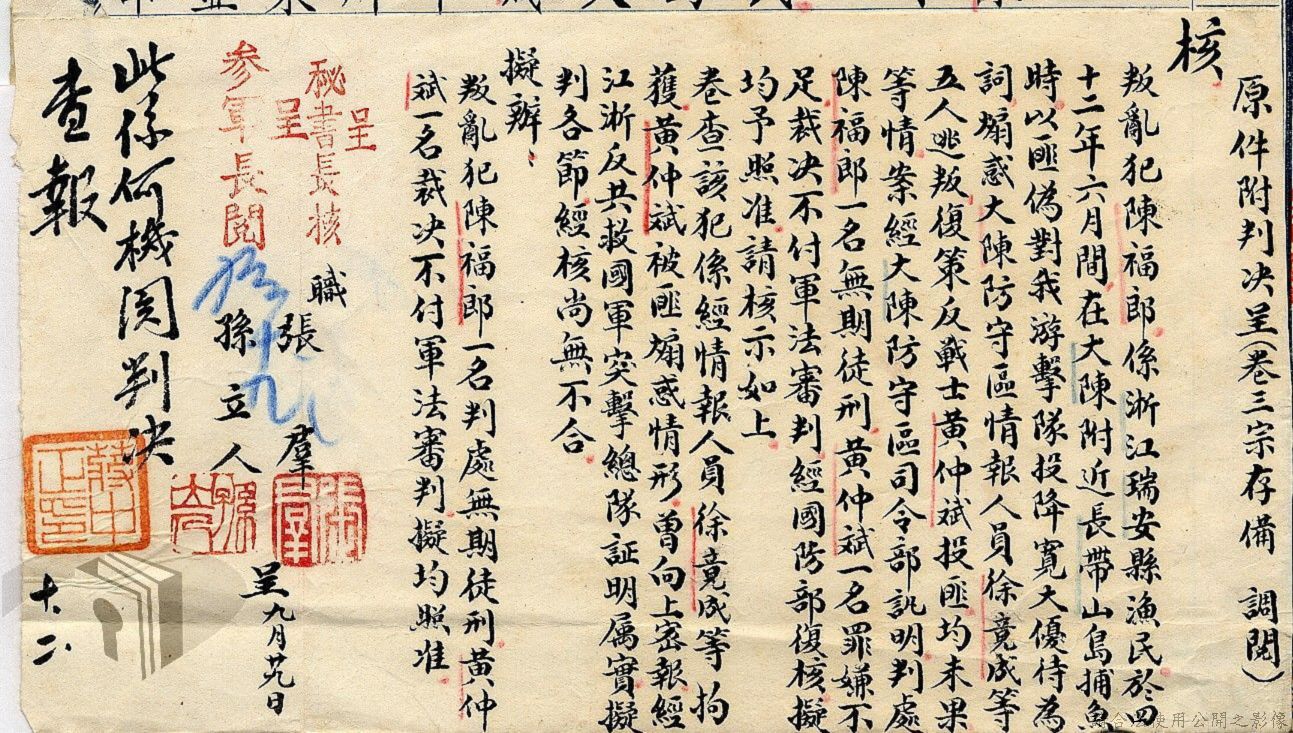 原件附判决呈(卷三宗存備 調閱)
核
叛亂犯陳福郎係浙江瑞安縣漁民於四
十二年六月間在大陳附近長帶山島捕魚
時以匪偽對我游擊隊投降寬大優待為
詞煽惑大陳防守區情報人員徐竟成等
五人逃叛復策反戰士黃仲斌投匪均未果
等情案經大陳防守區司令部訊明判處
陳福郎一名無期徒刑黃仲斌一名罪嫌不
足裁决不付軍法審判經國防部復核擬
均予照准請核示如上
卷查該犯係經情報人員徐竟成等拘
獲黃仲斌被匪煽惑情形曾向上密報經
江浙反共救國軍突擊總隊証明属實擬
判各節經核尚無不合
擬辦、
叛亂犯陳福郎一名判處無期徒刑黃仲
斌一名裁决不付軍法審判擬均照准
呈
秘書長核
呈
參軍長閱
職張羣
孫立人
張羣
呈九月廿九日
此係何機関判决
查報
蔣中正印
十、二、